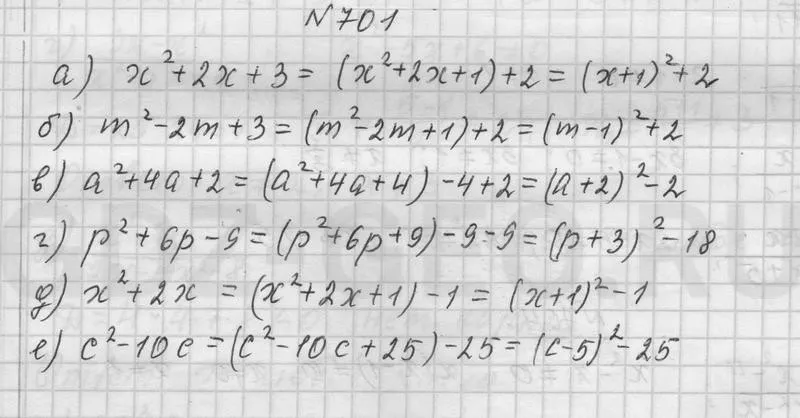 №701
а) x²+2x+3 = (x²+2x+1)+2 = (x+1)²+2
б) m²-2m+3=(m²-2m+1)+2=(m-1)²+2
в) a²+4a+2=(a²+4a+4)-4+2=(a+2)²-2
г) p²+6p-9=(p²+6p+9)-9-9=(p+3)²-18
д) x²+2x =(x²+2x+1)-1= (x+1)²-1
е) c²-10c=(c²-10c+25)-25=(c-5)²-25